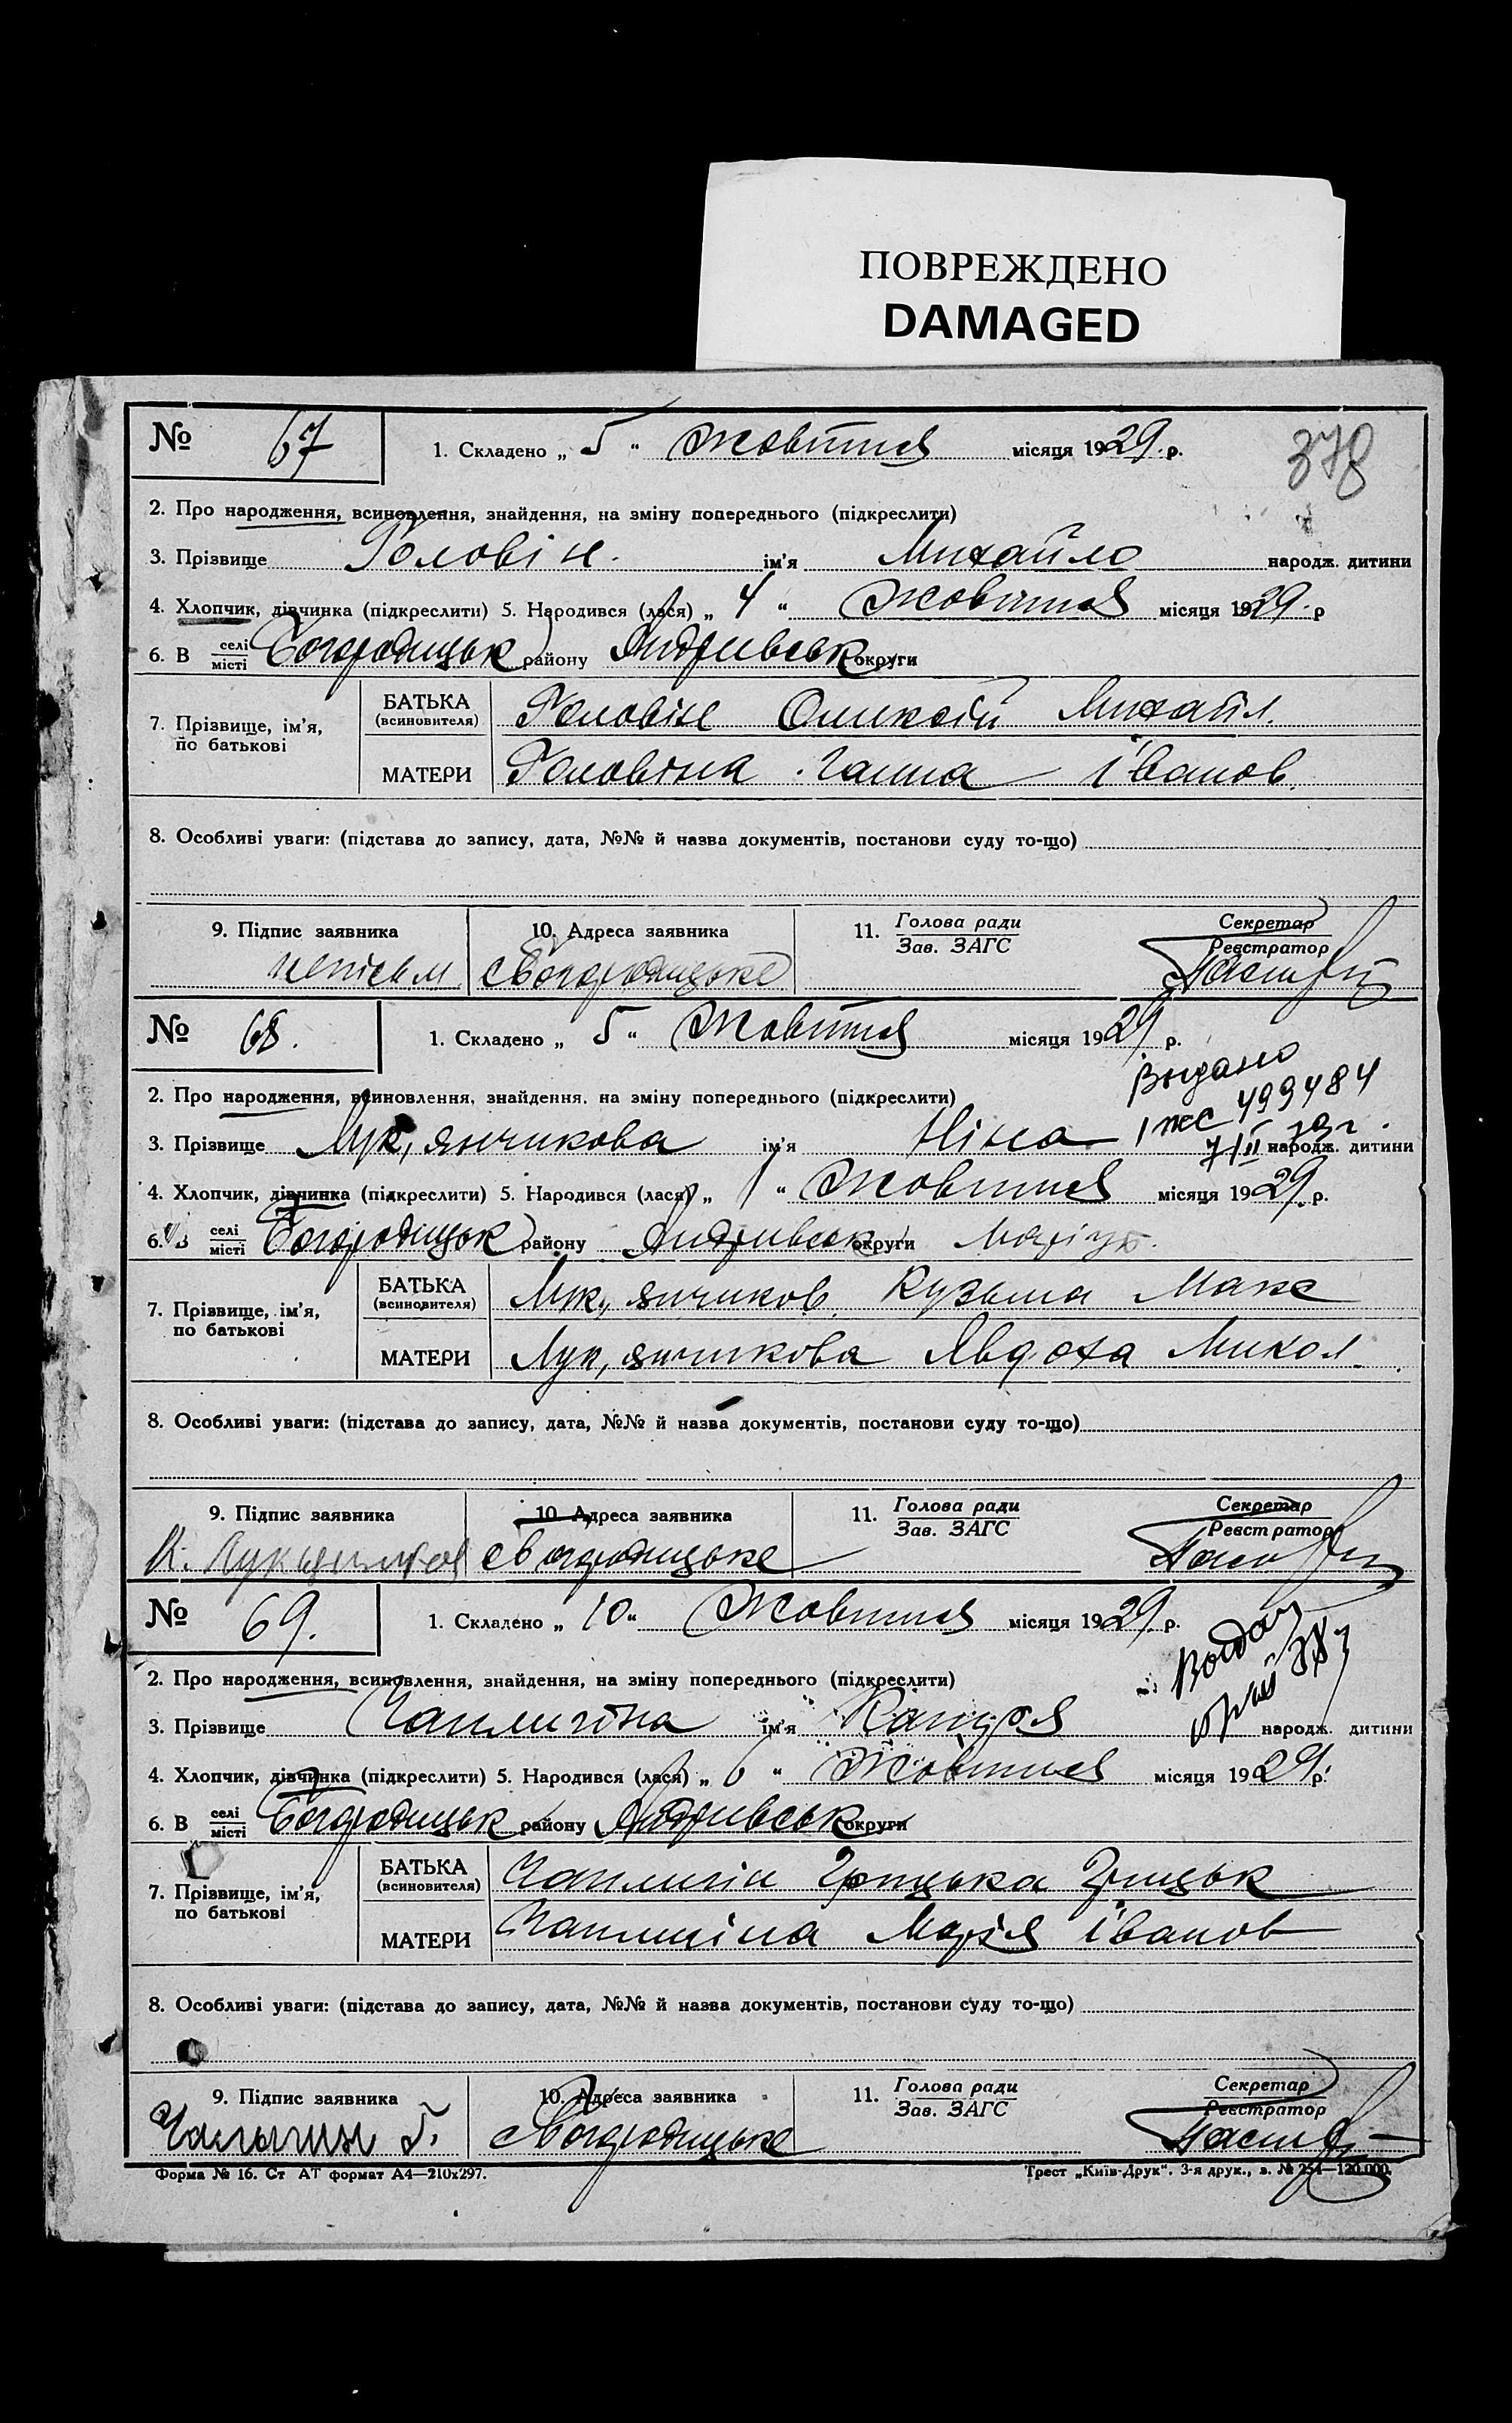 ПОВРЕЖДЕНО
DAMAGED
№ 67 1. Складено „ 5 “ Жовтня місяця 1929. р. 378
2. Про народження, всиновлення, знайдення, на зміну попереднього (підкреслити)
3. Прізвище Головін. ім'я Михайло народж. дитини
4. Хлопчик, дівчинка (підкреслити) 5. Народився (лася) „ 4 “ Жовтня місяця 1929. р
6. В селі місті Богородицьк району Андрівськ округи
7. Прізвище, ім'я, по батькові
БАТЬКА (всиновителя) Головін Олексій Михайл.
МАТЕРИ Головіна Ганна Іванов.
8. Особливі уваги: (підстава до запису, дата, №№ й назва документів, постанови суду то-що)
9. Підпис заявника 10. Адреса заявника 11. Голова ради Зав. ЗАГС Секретар Реєстратор
неписьм с Богородицьке
№ 68. 1. Складено „ 5 “ Жовтня місяця 1929 р.
Выдано
2. Про народження, всиновлення, знайдення, на зміну попереднього (підкреслити)
499484
3. Прізвище Лук,янчикова ім'я Ніна народж. дитини
4. Хлопчик, дівчинка (підкреслити) 5. Народився (лася) „ 1 “ Жовтня місяця 1929. р.
6. В селі місті Богородицьк району Андрівськ округи Маріуп.
7. Прізвище, ім'я, по батькові
БАТЬКА (всиновителя) Лук,янчиков Кузьма Макс
МАТЕРИ Лук,янчикова Явдоха Микол.
8. Особливі уваги: (підстава до запису, дата, №№ й назва документів, постанови суду то-що)
9. Підпис заявника 10. Адреса заявника 11. Голова ради Зав. ЗАГС Секретар Реєстратор
К. с Богородицьке
№ 69. 1. Складено „ 10 “ Жовтня місяця 1929. р.
2. Про народження, всиновлення, знайдення, на зміну попереднього (підкреслити)
3. Прізвище Чаплигіна ім'я народж. дитини
4. Хлопчик, дівчинка (підкреслити) 5. Народився (лася) „ 6 “ Жовтня місяця 1929. р.
6. В селі місті Богородицьк району Андрівськ округи
7. Прізвище, ім'я, по батькові
БАТЬКА (всиновителя) Чаплигін Грицька Грицьк
МАТЕРИ Чаплигіна Марія Іванов
8. Особливі уваги: (підстава до запису, дата, №№ й назва документів, постанови суду то-що)
9. Підпис заявника 10. Адреса заявника 11. Голова ради Зав. ЗАГС Секретар Реєстратор
с Богородицьке
Форма № 16. Ст АТ формат А4—210х297. Трест „Київ-Друк“. 3-я друк., з. № 254—120.000.